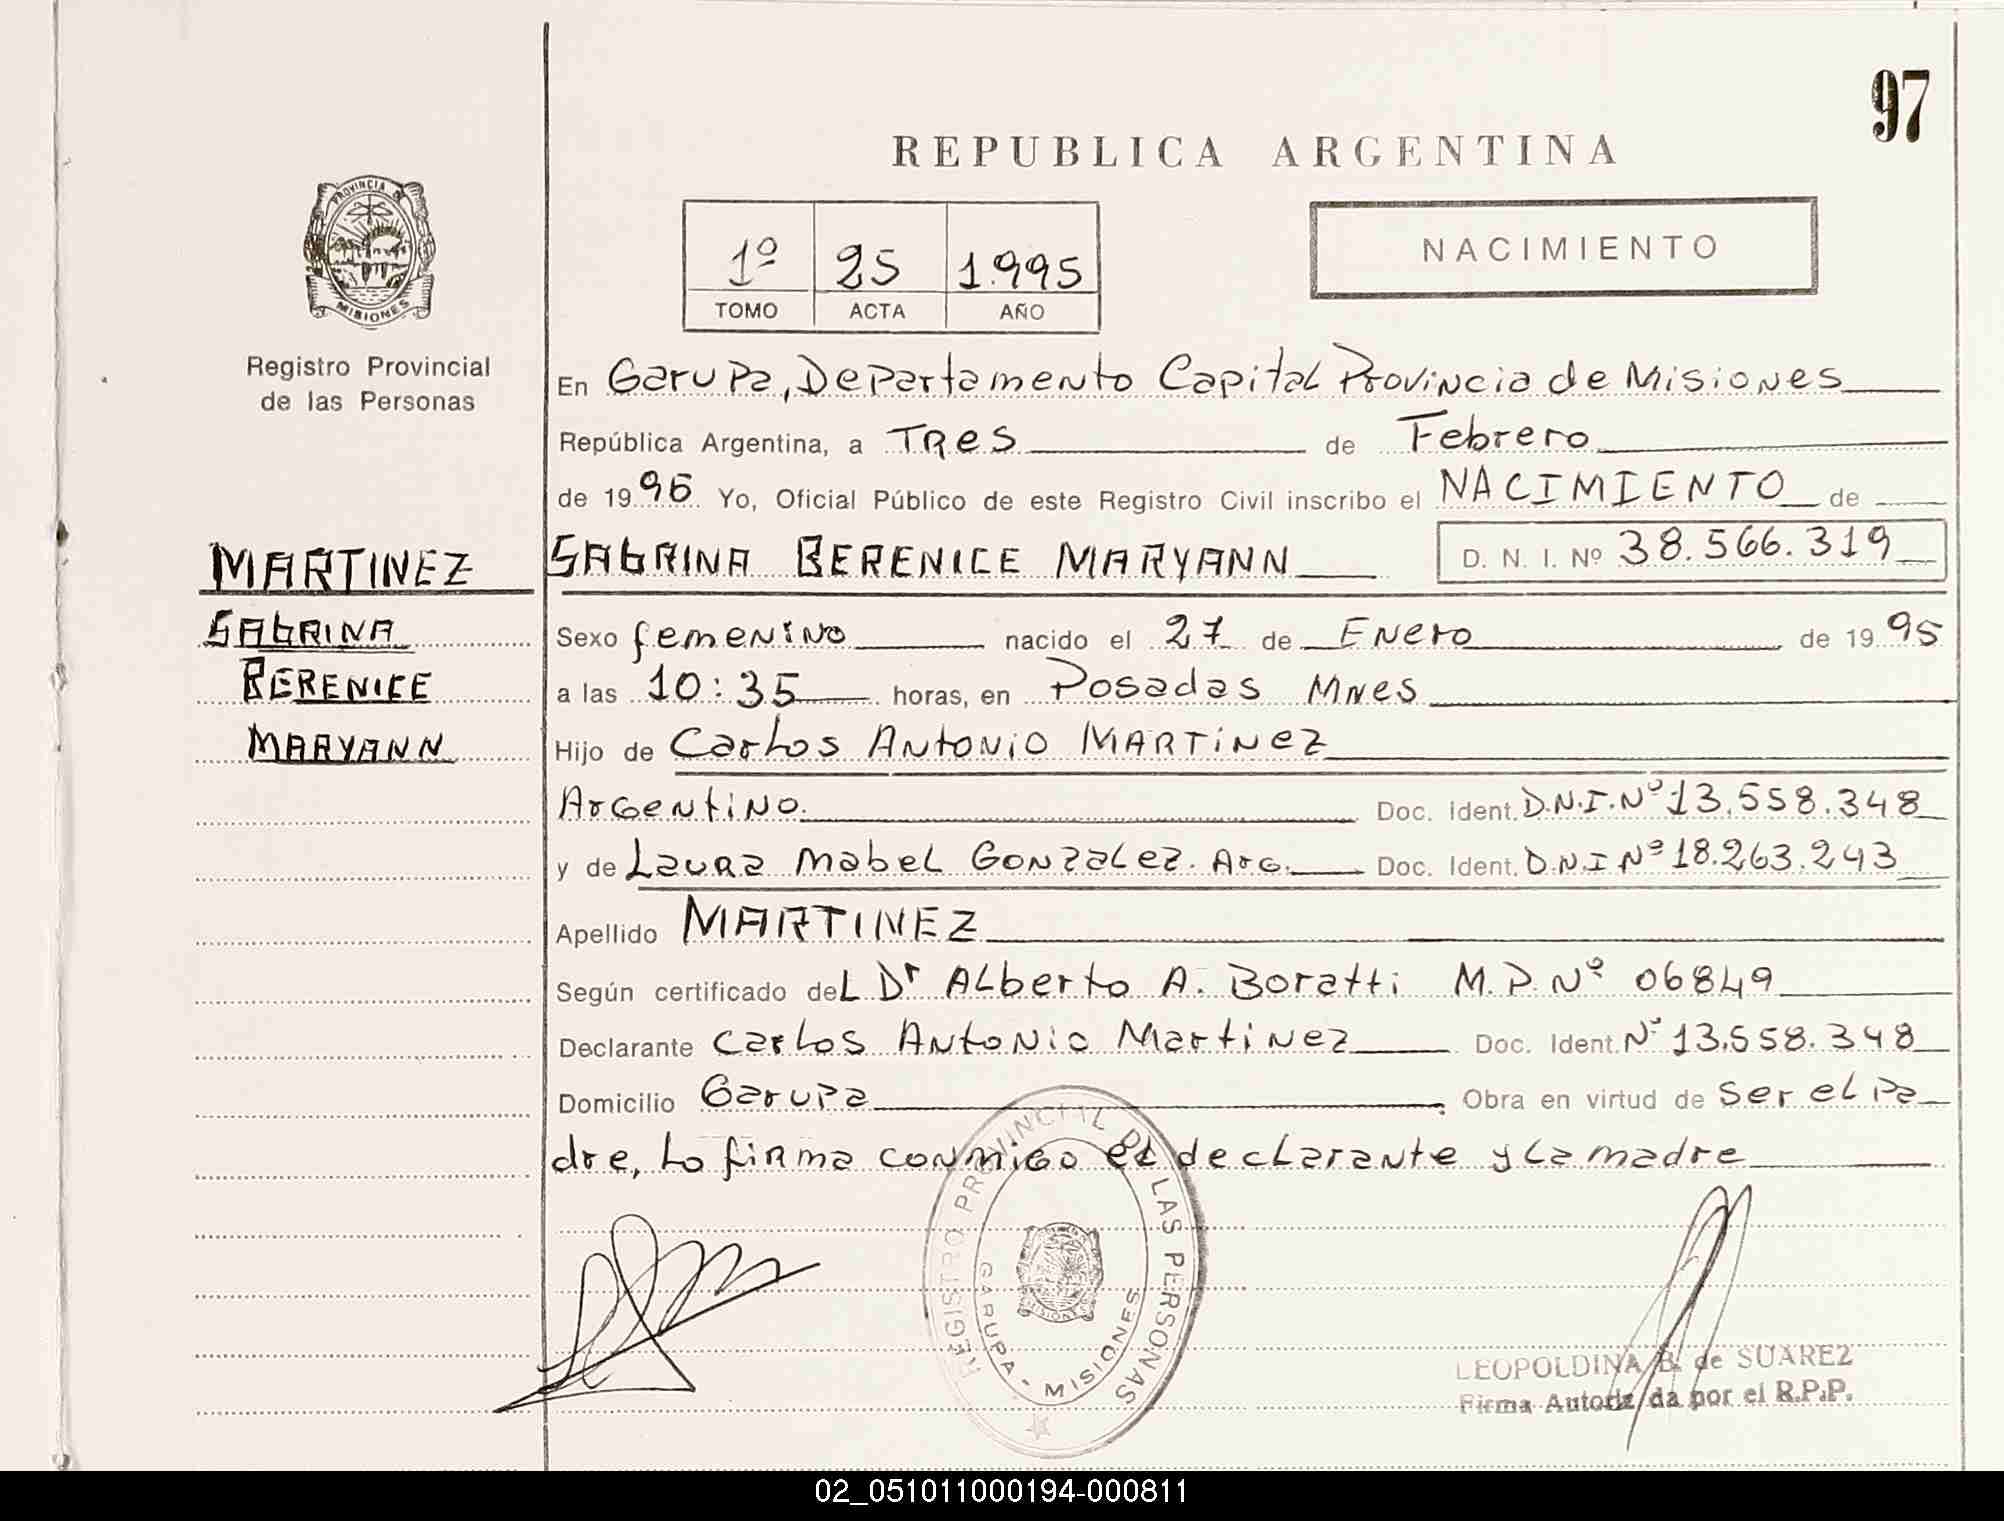 97
REPUBLICA ARGENTINA
PROVINCIA DE
MISIONES
Registro Provincial
de las Personas
1º 25 1.995
TOMO ACTA AÑO
NACIMIENTO
En Garupa, Departamento Capital Provincia de Misiones
República Argentina, a Tres de Febrero
de 1995 Yo, Oficial Público de este Registro Civil inscribo el NACIMIENTO de
MARTINEZ
SABRINA
BERENICE
MARYANN
SABRINA BERENICE MARYANN D. N. I. Nº 38.566.319
Sexo femenino nacido el 27 de Enero de 1995
a las 10:35 horas, en Posadas Mnes
Hijo de Carlos Antonio Martinez
Argentino. Doc. Ident. D.N.I.Nº 13.558.348
y de Laura Mabel Gonzalez. Arg. Doc. Ident. D.N.I Nº 18.263.243
Apellido MARTINEZ
Según certificado del Dr Alberto A. Boratti M.P. Nº 06849
Declarante Carlos Antonio Martinez Doc. Ident. Nº 13.558.348
Domicilio Garupa Obra en virtud de Ser el Pa
dre, Lo firma conmigo el declarante y la madre
REGISTRO PROVINCIAL DE LAS PERSONAS
GARUPA - MISIONES
MISIONES
LEOPOLDINA B. de SUAREZ
Firma Autorizada por el R.P.P.
02_051011000194-000811